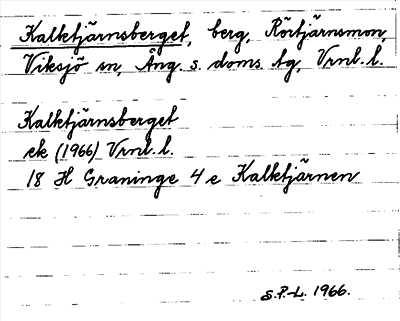 Kalktjärnsberget, berg, Rörtjärnsmon,
Viksjö sn, Ång. s. doms. tg, Vrnl. l.
Kalktjärnsberget
ek (1966) Vrnl. l.
18 H Graninge 4 e Kalktjärnen
S.P.-L. 1966.